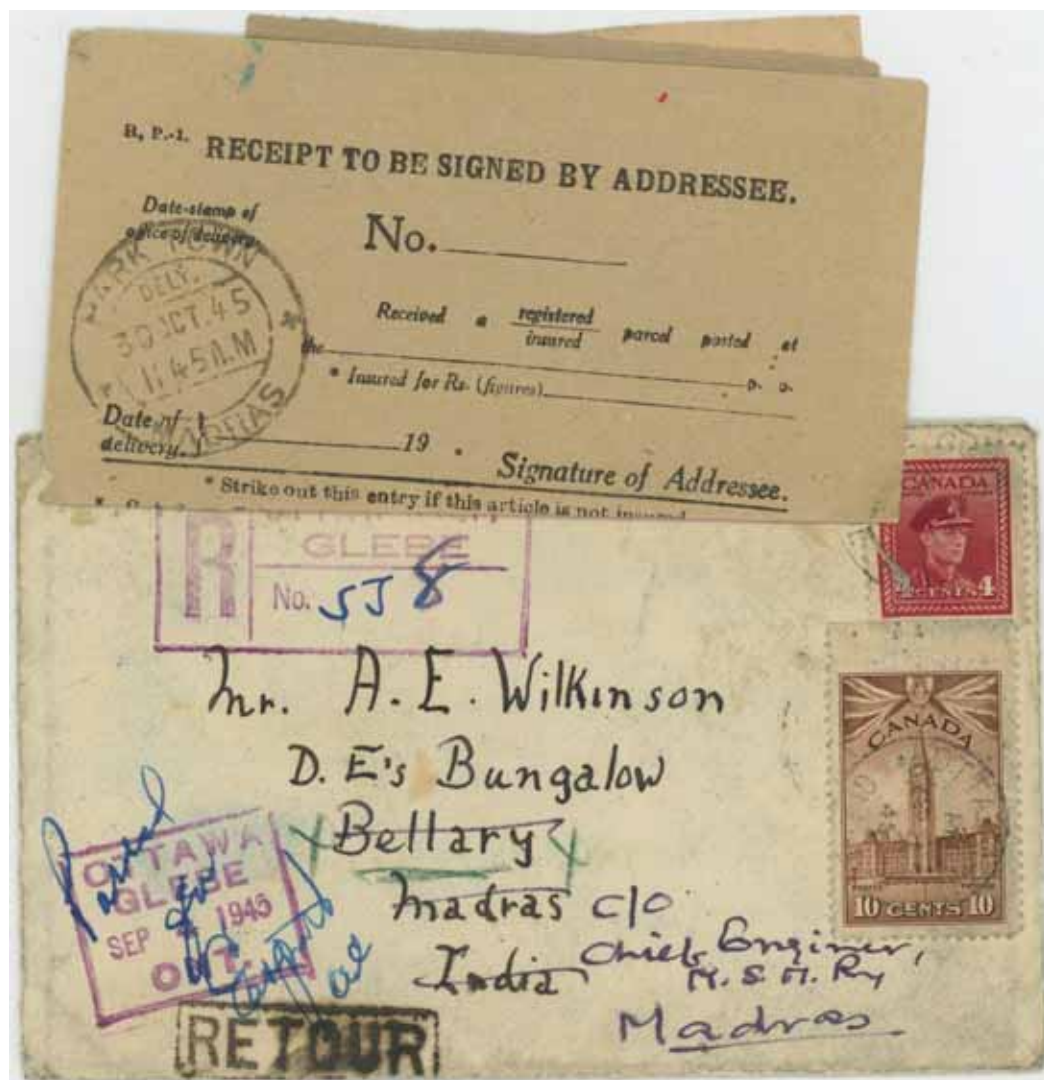 R, P.-1. RECEIPT TO BE SIGNED BY ADDRESSEE.
Date-stamp of
office of delivery.
No.
PARK TOWN
DELY.
30 OCT. 45
11 45 A.M
MADRAS
Received a registered parcel posted at
insured
the
p. o.
* Insured for Rs. (figures)
Date of
delivery.
19 .
Signature of Addressee.
* Strike out this entry if this article is not insured
R
GLEBE
No. 558
CANADA
4 CENTS 4
Mr. A. E. Wilkinson
D. E's Bungalow
Bellary
Madras c/o
India Chief Enginer,
M. S. M. Ry
Madras
CANADA
10 CENTS 10
OTTAWA
GLEBE
SEP 1945
ONT.
RETOUR